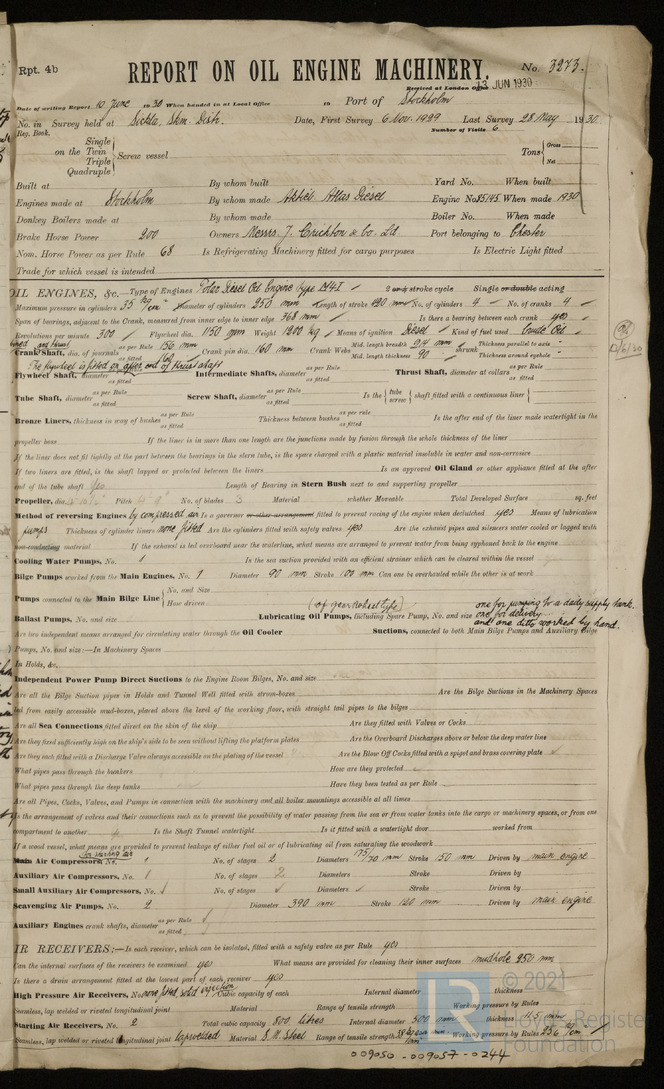 Rpt. 4b
REPORT ON OIL ENGINE MACHINERY.
No. 3273.
Received at London Office 13 JUN 1930
Date of writing Report 10 June 1930 When handed in at Local Office 10 Port of Stockholm
No. in Survey held at Sickla, Shm. Distr. Date, First Survey 6 Nov. 1929 Last Survey 28 May 1930
Reg. Book. Number of Visits 6
Single
on the Twin
Triple
Quadruple
Screw vessel
Tons Gross
Net
Built at By whom built Yard No. When built
Engines made at Stockholm By whom made Aktieb. Atlas Diesel Engine No. 85145 When made 1930
Donkey Boilers made at By whom made Boiler No. When made
Brake Horse Power 200 Owners Messrs. J. Crichton & Co. Ltd Port belonging to Chester
Nom. Horse Power as per Rule 68 Is Refrigerating Machinery fitted for cargo purposes Is Electric Light fitted
Trade for which vessel is intended
OIL ENGINES, &c.—Type of Engines Polar Diesel Oil Engine type 2 or stroke cycle Single or double acting
Maximum pressure in cylinders 35 Diameter of cylinders 250 mm Length of stroke 420 mm No. of cylinders 4 No. of cranks 4
Span of bearings, adjacent to the Crank, measured from inner edge to inner edge 368 mm Is there a bearing between each crank yes
Revolutions per minute 300 Flywheel dia. 1150 mm Weight 1200 kg Means of ignition Diesel Kind of fuel used Crude Oil
Crank Shaft, dia. of journals as per Rule 156 mm as fitted 160 Crank pin dia. 160 mm Crank Webs Mid. length breadth Mid. length thickness 90 shrunk Thickness parallel to axis Thickness around eyehole
The flywheel is fitted on after end of thrust shaft
Flywheel Shaft, diameter as per Rule as fitted Intermediate Shafts, diameter as per Rule as fitted Thrust Shaft, diameter at collars as per Rule as fitted
Tube Shaft, diameter as per Rule as fitted Screw Shaft, diameter as per Rule as fitted Is the tube screw shaft fitted with a continuous liner
Bronze Liners, thickness in way of bushes as per Rule as fitted Thickness between bushes as per rule as fitted Is the after end of the liner made watertight in the
propeller boss If the liner is in more than one length are the junctions made by fusion through the whole thickness of the liner
If the liner does not fit tightly at the part between the bearings in the stern tube, is the space charged with a plastic material insoluble in water and non-corrosive
If two liners are fitted, is the shaft lapped or protected between the liners Is an approved Oil Gland or other appliance fitted at the after
end of the tube shaft Length of Bearing in Stern Bush next to and supporting propeller
Propeller, dia. Pitch No. of blades 3 Material whether Moveable Total Developed Surface sq. feet
Method of reversing Engines by compressed air Is a governor or other arrangement fitted to prevent racing of the engine when declutched yes Means of lubrication
pumps Thickness of cylinder liners none fitted Are the cylinders fitted with safety valves yes Are the exhaust pipes and silencers water cooled or lagged with
non-conducting material If the exhaust is led overboard near the waterline, what means are arranged to prevent water from being syphoned back to the engine
Cooling Water Pumps, No. 1 Is the sea suction provided with an efficient strainer which can be cleared within the vessel
Bilge Pumps worked from the Main Engines, No. 1 Diameter 90 mm Stroke 100 mm Can one be overhauled while the other is at work
Pumps connected to the Main Bilge Line No. and Size
How driven
(of gearwheel type) one for pumping to a daily supply tank.
Ballast Pumps, No. and size Lubricating Oil Pumps, including Spare Pump, No. and size one for delivery
and one ditto worked by hand.
Are two independent means arranged for circulating water through the Oil Cooler Suctions, connected to both Main Bilge Pumps and Auxiliary Bilge
Pumps, No. and size:—In Machinery Spaces
In Holds, &c.
Independent Power Pump Direct Suctions to the Engine Room Bilges, No. and size
Are all the Bilge Suction pipes in Holds and Tunnel Well fitted with strum-boxes Are the Bilge Suctions in the Machinery Spaces
led from easily accessible mud-boxes, placed above the level of the working floor, with straight tail pipes to the bilges
Are all Sea Connections fitted direct on the skin of the ship Are they fitted with Valves or Cocks
Are they fixed sufficiently high on the ship's side to be seen without lifting the platform plates Are the Overboard Discharges above or below the deep water line
Are they each fitted with a Discharge Valve always accessible on the plating of the vessel Are the Blow Off Cocks fitted with a spigot and brass covering plate
What pipes pass through the bunkers How are they protected
What pipes pass through the deep tanks Have they been tested as per Rule
Are all Pipes, Cocks, Valves, and Pumps in connection with the machinery and all boiler mountings accessible at all times
Is the arrangement of valves and their connections such as to prevent the possibility of water passing from the sea or from water tanks into the cargo or machinery spaces, or from one
compartment to another Is the Shaft Tunnel watertight Is it fitted with a watertight door worked from
If a wood vessel, what means are provided to prevent leakage of either fuel oil or of lubricating oil from saturating the woodwork
for starting air
Main Air Compressors, No. 1 No. of stages 2 Diameters 175/70 mm Stroke 150 mm Driven by main engine
Auxiliary Air Compressors, No. 1 No. of stages 2 Diameters Stroke Driven by
Small Auxiliary Air Compressors, No. No. of stages Diameters Stroke Driven by
Scavenging Air Pumps, No. 2 Diameter 390 mm Stroke 120 mm Driven by main engine
Auxiliary Engines crank shafts, diameter as per Rule as fitted
IR RECEIVERS:—Is each receiver, which can be isolated, fitted with a safety valve as per Rule yes
Can the internal surfaces of the receivers be examined yes What means are provided for cleaning their inner surfaces mudhole 250 mm
Is there a drain arrangement fitted at the lowest part of each receiver yes
High Pressure Air Receivers, No. none fitted, solid injection Cubic capacity of each Internal diameter thickness
Seamless, lap welded or riveted longitudinal joint Material Range of tensile strength Working pressure by Rules
Starting Air Receivers, No. 2 Total cubic capacity 800 litres Internal diameter 500 mm thickness 11.5 mm
Seamless, lap welded or riveted longitudinal joint lapwelded Material S. M. Steel Range of tensile strength Working pressure by Rules
009050 - 009057 - 0244
LR © 2021
Lloyd's Register
Foundation